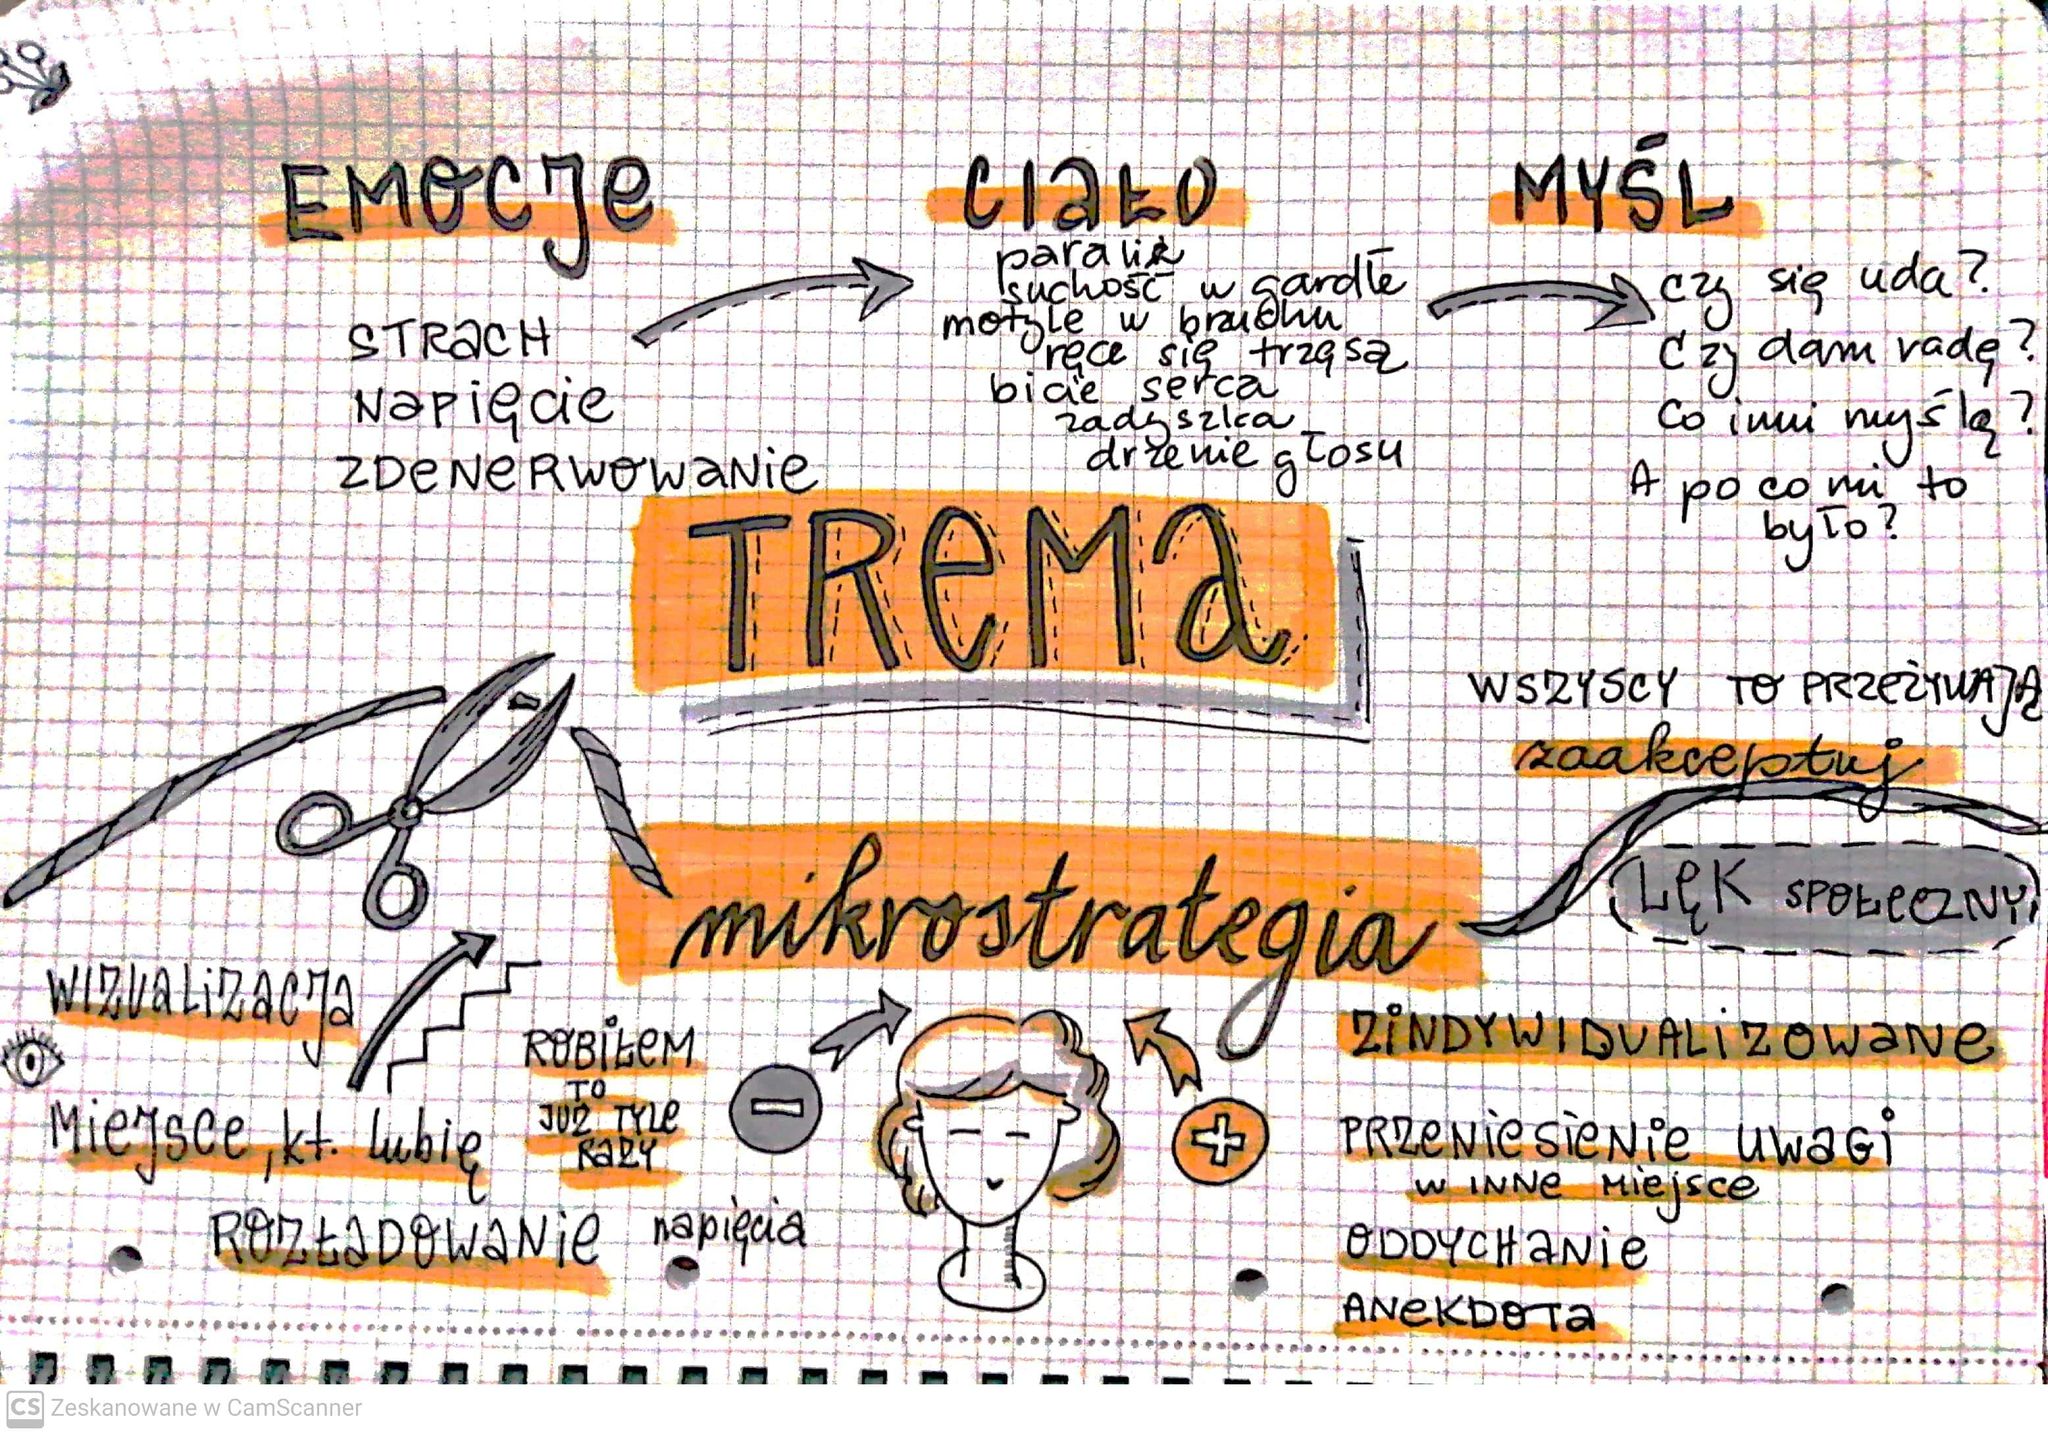 EMOCJE
STRACH
NAPIĘCIE
ZDENERWOWANIE
CIAŁO
paraliż
suchość w gardle
motyle w brzuchu
ręce się trzęsą
bicie serca
zadyszka
drżenie głosu
MYŚL
Czy się uda?
Czy dam radę?
Co inni myślą?
A po co mi to
było?
TREMA
WSZYSCY TO PRZEŻYWAJĄ
zaakceptuj
LĘK SPOŁECZNY
mikrostrategia
WIZUALIZACJA
MIEJSCE, kt. lubię
ROZŁADOWANIE napięcia
ROBIŁEM
TO
JUŻ TYLE
RAZY
ZINDYWIDUALIZOWANE
PRZENIESIENIE UWAGI
W INNE MIEJSCE
ODDYCHANIE
ANEKDOTA
CS Zeskanowane w CamScanner